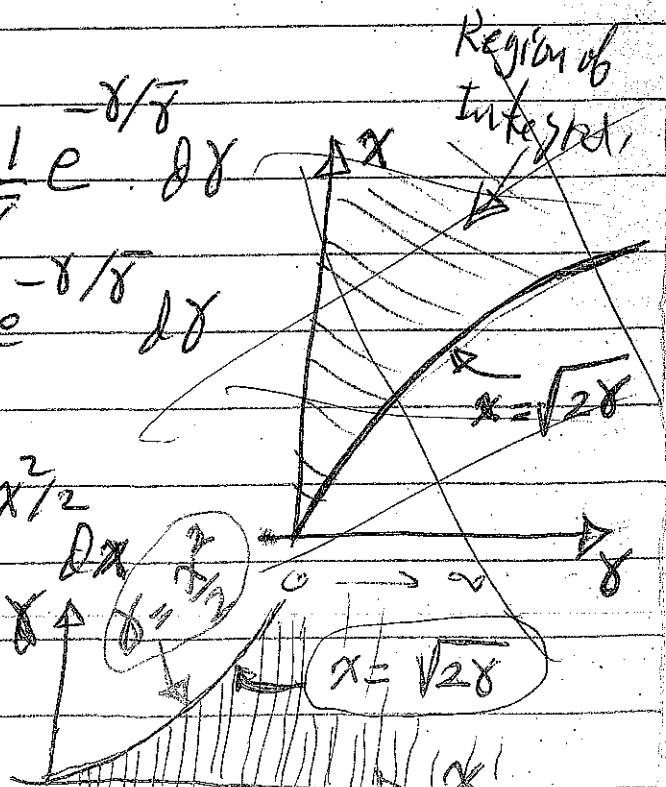 Region of
Integral,
1/γ̄ e^{-γ/γ̄} . dγ
x
e^{-γ/γ̄} dγ
x = √2γ
x²/2
dx
0 → ∞
γ
γ
γ = x²/2
x = √2γ
x